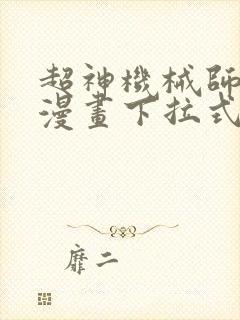 超神機械師
漫畫下拉式
靡二